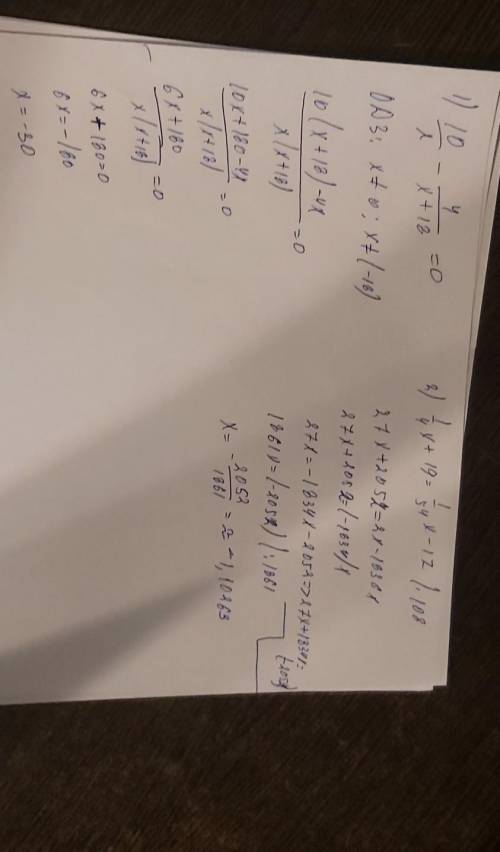 1) 10/x - 4/x+18 = 0
ОДЗ: x≠0; x≠(-18)
10(x+18)-4x/x(x+18) = 0
10x+180-4x/x(x+18) = 0
6x+180/x(x+18) = 0
6x+180=0
6x=-180
x=-30
2) 1/4x+19=1/54x-17 |·108
27x+2052=2x-1836x
27x+2052=(-1834)x
27x=-1834x-2052=>27x+1834x=
(-2052)
1861x=(-2052) |:1861
x=-2052/1861=≈-1,10263